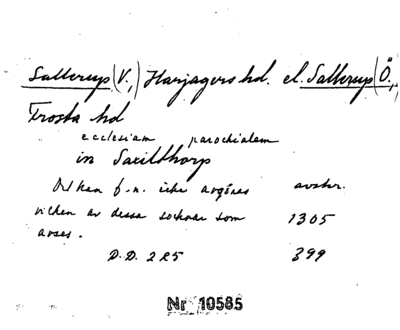 Sallerup (V.,) Harjagers hd. el. Sallerup (Ö.,
Frosta hd
ecclesiam parochialem
in Saxilthorp
Det kan f.n. icke avgöras avskr.
vilken av dessa socknar som 1305
avses.
D.D. 2 R5 399
Nr 10585